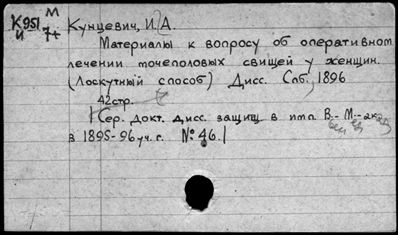 К951 М
и 7+
Кунцевич, И. А.
Материалы к вопросу об оперативном
лечении мочеполовых свищей у женщин.
(Лоскутный способ) Дисс. Спб, 1896
42стр.
(Сер. докт. дисс. защищ в имп. В.-М.-акад
в 1895-96 уч. г. №46.)